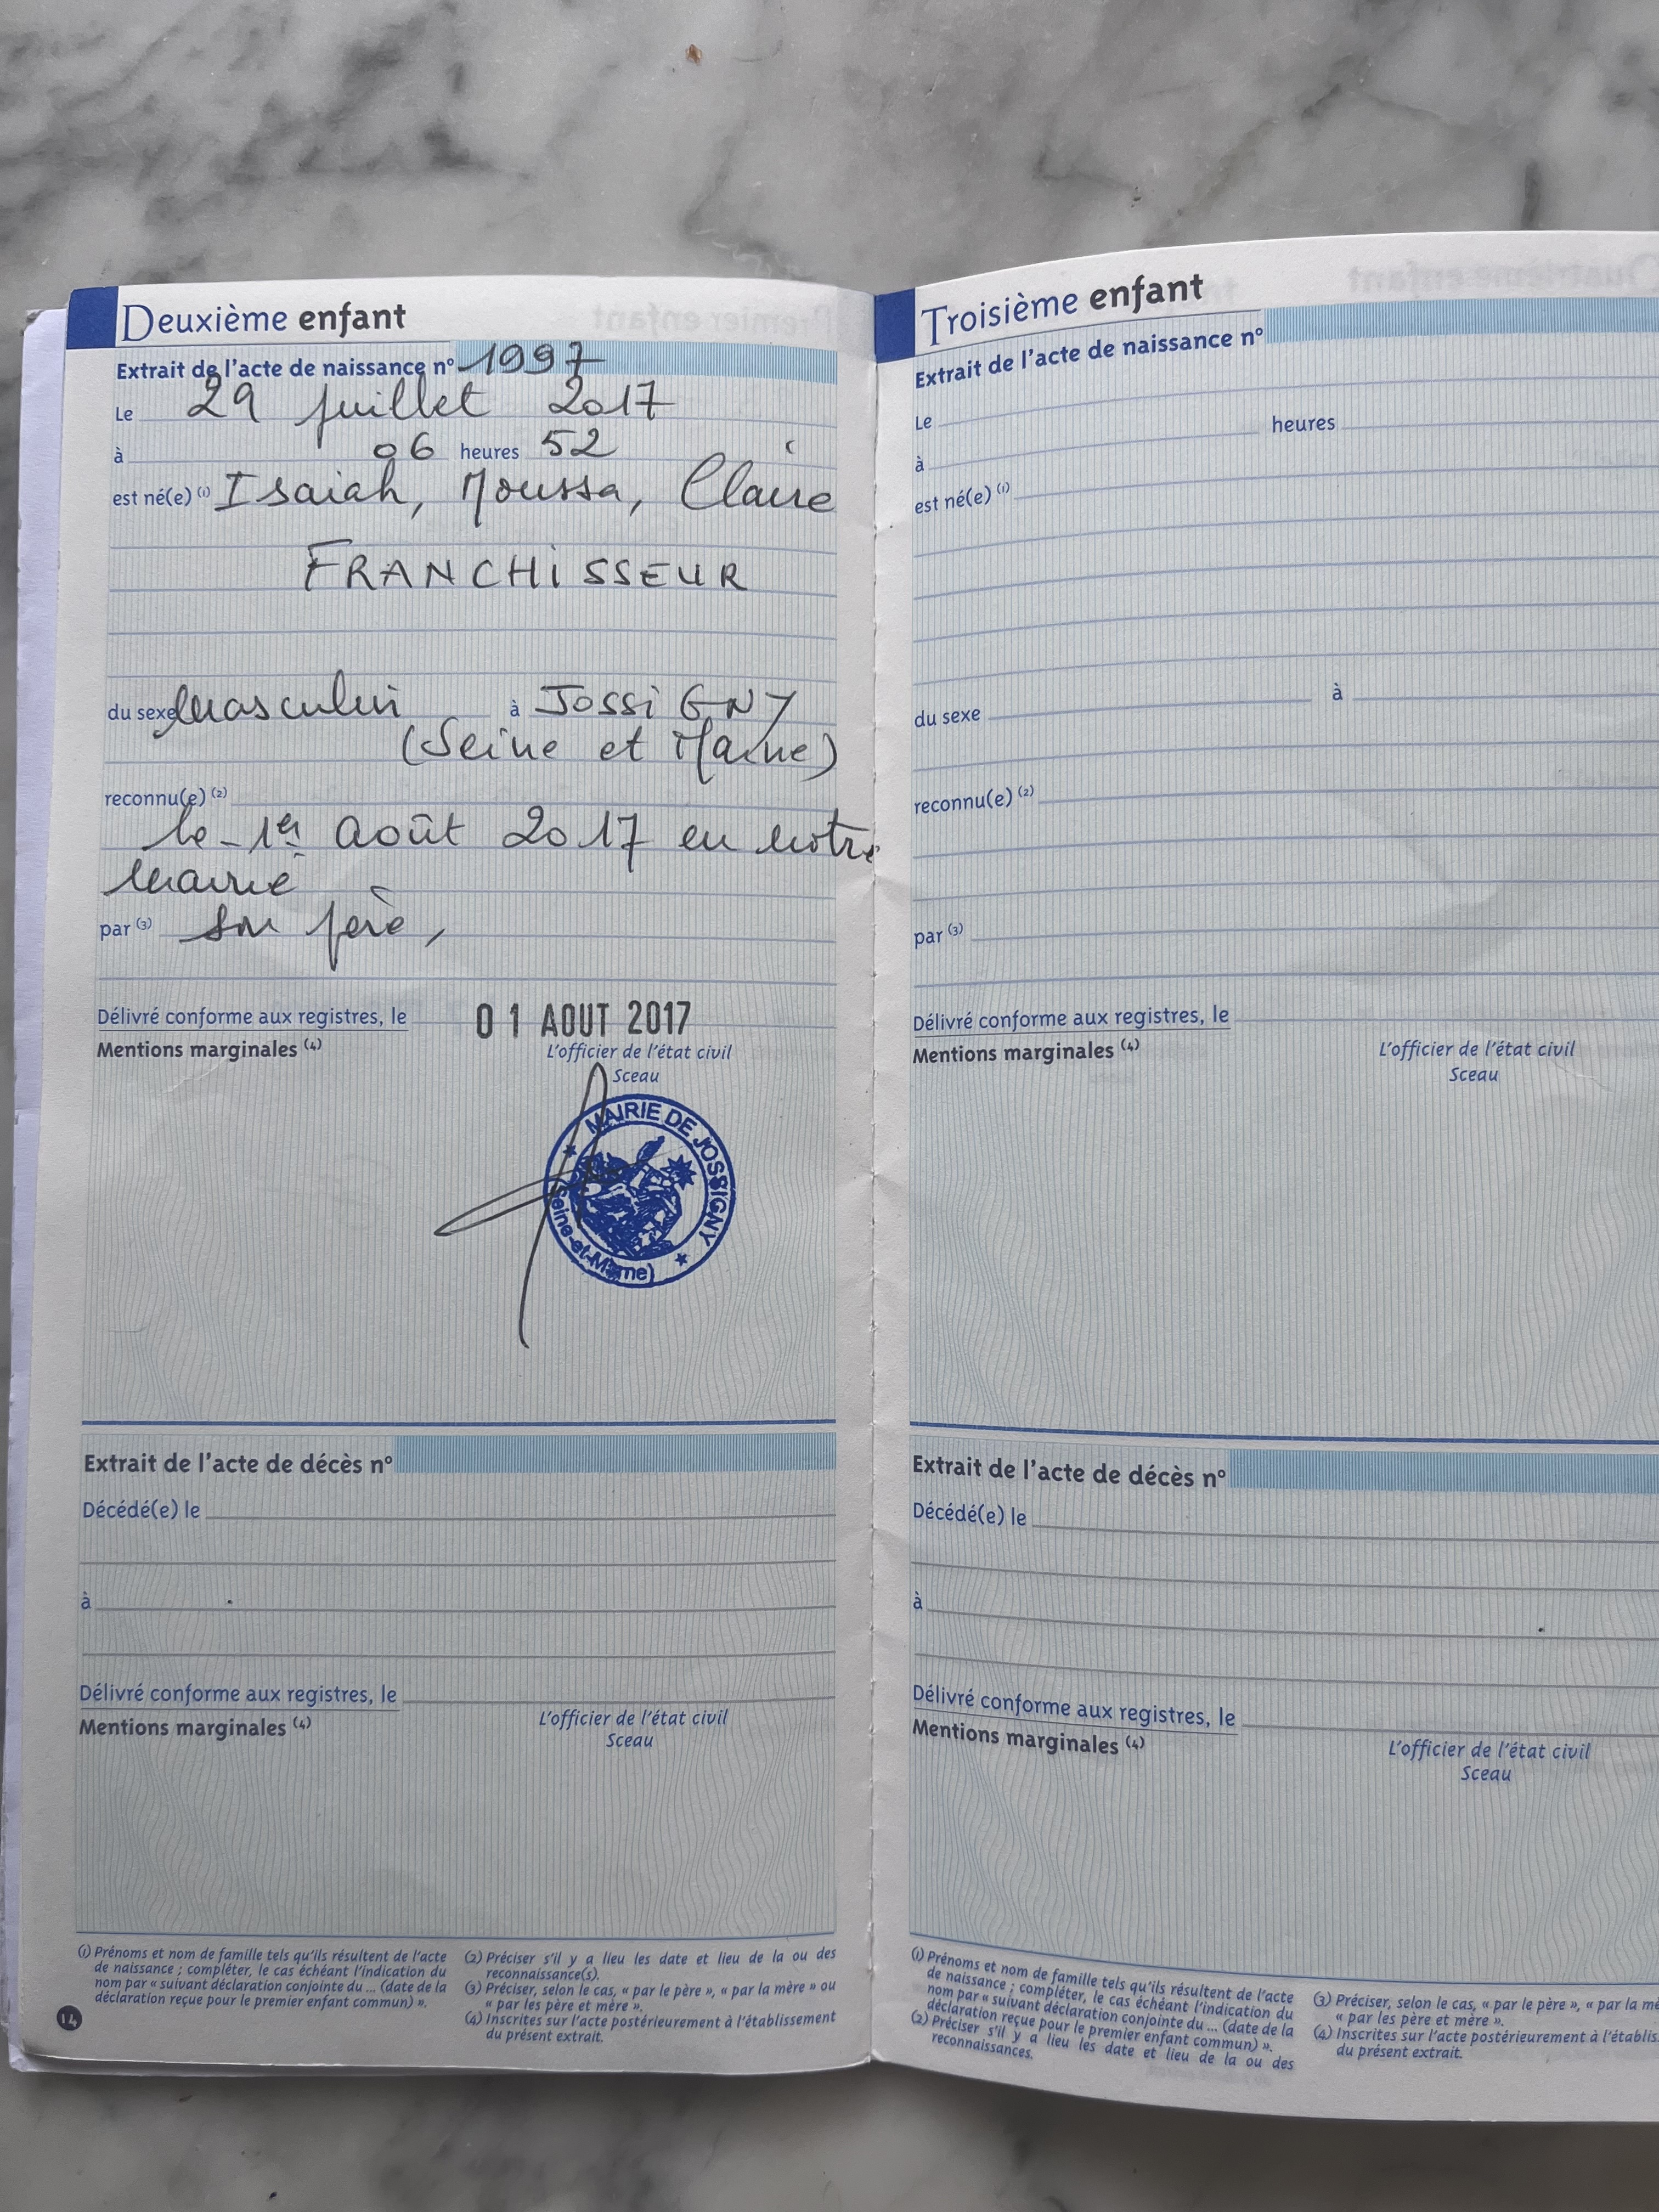 Deuxième enfant
Extrait de l'acte de naissance nº 1997
Le 29 juillet 2017
à 06 heures 52
est né(e) (1) Isaiah, Moussa, Claire
FRANCHISSEUR
du sexe masculin à JOSSIGNY
(Seine et Marne)
reconnu(e) (2)
le 1er août 2017 en notre
mairie
par (3) son père,
Délivré conforme aux registres, le 01 AOUT 2017
Mentions marginales (4)
L'officier de l'état civil
Sceau
MAIRIE DE JOSSIGNY
(Seine-et-Marne)
Extrait de l'acte de décès nº
Décédé(e) le
à
Délivré conforme aux registres, le
Mentions marginales (4)
L'officier de l'état civil
Sceau
(1) Prénoms et nom de famille tels qu'ils résultent de l'acte
de naissance ; compléter, le cas échéant l'indication du
nom par « suivant déclaration conjointe du ... (date de la
déclaration reçue pour le premier enfant commun) ».
(2) Préciser s'il y a lieu les date et lieu de la ou des
reconnaissance(s).
(3) Préciser, selon le cas, « par le père », « par la mère » ou
« par les père et mère ».
(4) Inscrites sur l'acte postérieurement à l'établissement
du présent extrait.
14
Troisième enfant
Extrait de l'acte de naissance nº
Le
heures
à
est né(e) (1)
du sexe à
reconnu(e) (2)
par (3)
Délivré conforme aux registres, le
Mentions marginales (4)
L'officier de l'état civil
Sceau
Extrait de l'acte de décès nº
Décédé(e) le
à
Délivré conforme aux registres, le
Mentions marginales (4)
L'officier de l'état civil
Sceau
(1) Prénoms et nom de famille tels qu'ils résultent de l'acte
de naissance ; compléter, le cas échéant l'indication du
nom par « suivant déclaration conjointe du ... (date de la
déclaration reçue pour le premier enfant commun) ».
(2) Préciser s'il y a lieu les date et lieu de la ou des
reconnaissances.
(3) Préciser, selon le cas, « par le père », « par la
« par les père et mère ».
(4) Inscrites sur l'acte postérieurement à
du présent extrait.